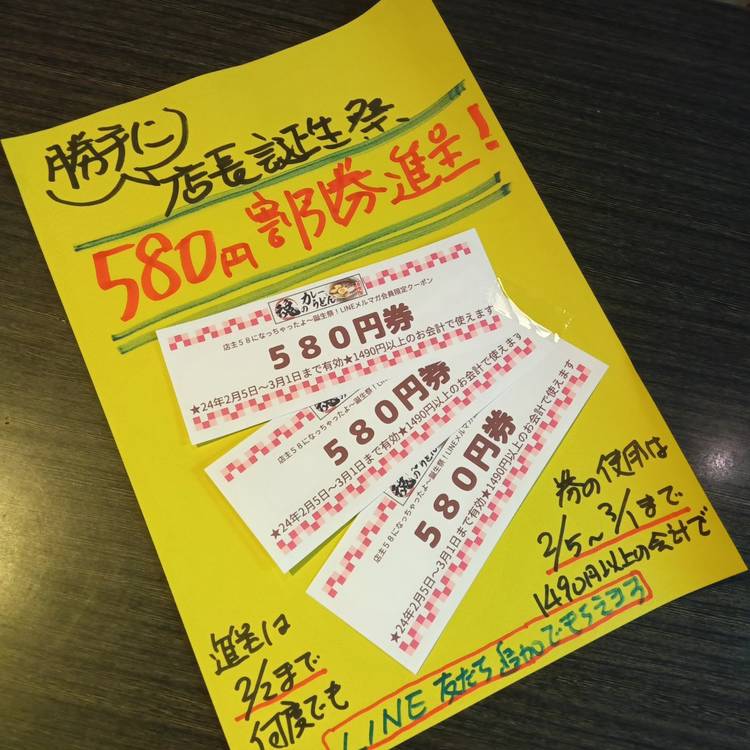 勝手に
店長誕生祭、
580円割券進呈!
魂のカレーうどん
店主58になっちゃったよ〜誕生祭!LINEメルマガ会員限定クーポン
580円券
★24年2月5日〜3月1日まで有効★1490円以上のお会計で使えます
店主58になっちゃったよ〜誕生祭!LINEメルマガ会員限定ク
580円券
★24年2月5日〜3月1日まで有効★1490円以上のお会計で使えます
魂 うどん
店主58になっちゃったよ〜誕生祭!LINEメルマガ会員限定クーポン
580円券
★24年2月5日〜3月1日まで有効★1490円以上のお会計で使えます
券の使用は
2/5〜3/1まで
1490円以上の会計で
進呈は
2/2まで
何度でも
LINE 友だち追加でもらえます